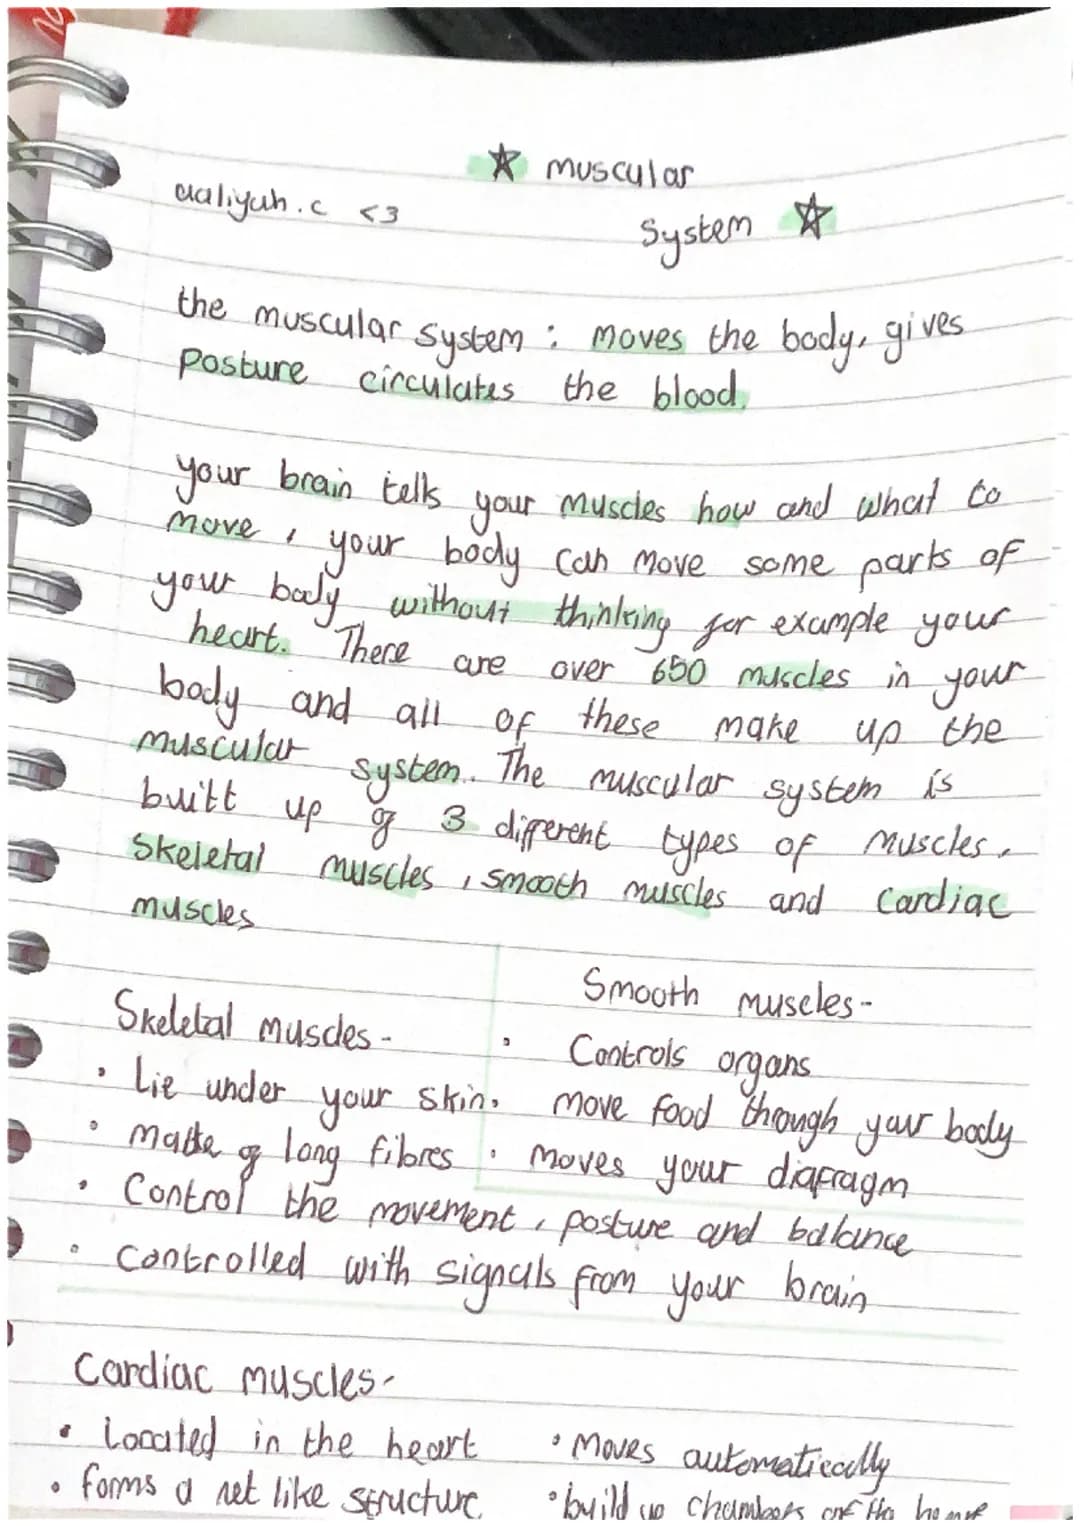 ☆ muscular
aaliyah.c <3
System ☆
the muscular system : moves the body, gives
posture circulates the blood.
your brain tells your muscles how and what to
move, your body can move some parts of
your body without thinking for example your
heart. There are over 650 muscles in your
body and all of these make up the
muscular system. The muscular system is
built up of 3 different types of muscles.
Skeletal muscles, smooth muscles and Cardiac
muscles
Smooth muscles-
Skeletal muscles-
• Controls organs
• Lie under your skin.
move food through your body
• made of long fibres
• moves your diafragm
• Control the movement, posture and balance
• controlled with signals from your brain
Cardiac muscles-
• Located in the heart
• Moves automatically
• forms a net like structure
• build up chambers of the